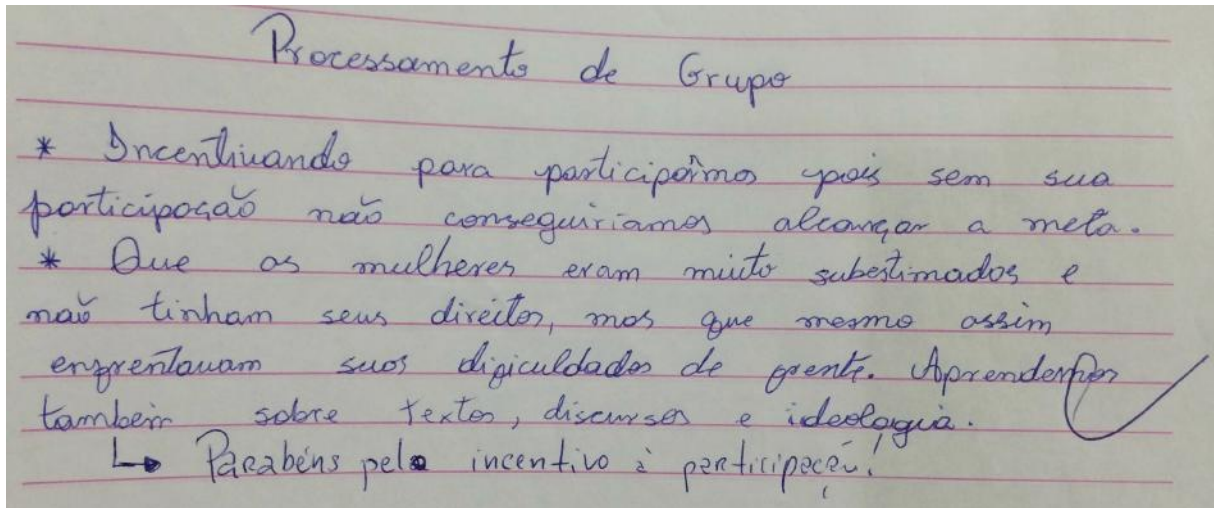 Processamento de Grupo
* Incentivando para participármos pois sem sua
participação não conseguiriamos alcançar a meta.
* Que as mulheres eram muito subestimadas e
não tinham seus direitos, mas que mesmo assim
enfrentavam suas dificuldades de frente. Aprendemos
também sobre textos, discursos e ideologia.
↳ Parabéns pelo incentivo à participação!